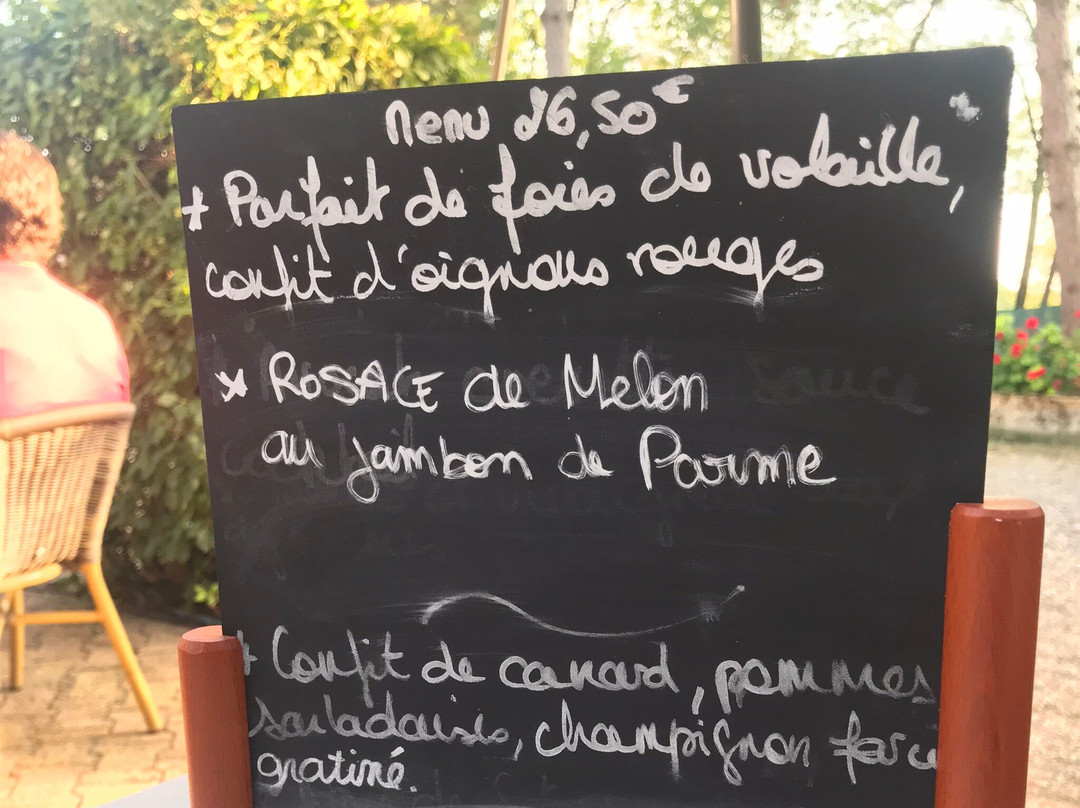 Menu 26,50€
+ Parfait de foies de volaille,
confit d'oignons rouges
* ROSACE de Melon
au jambon de Parme
+ Confit de canard, pommes
sarladaises, champignon farci
gratiné.